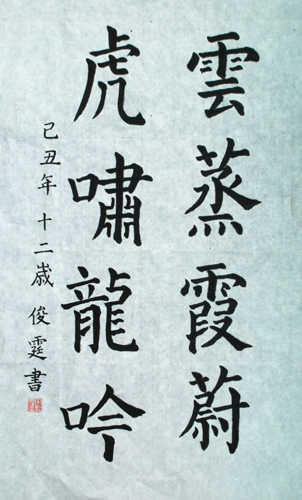 雲蒸霞蔚
虎嘯龍吟
己丑年十二歲俊霆書